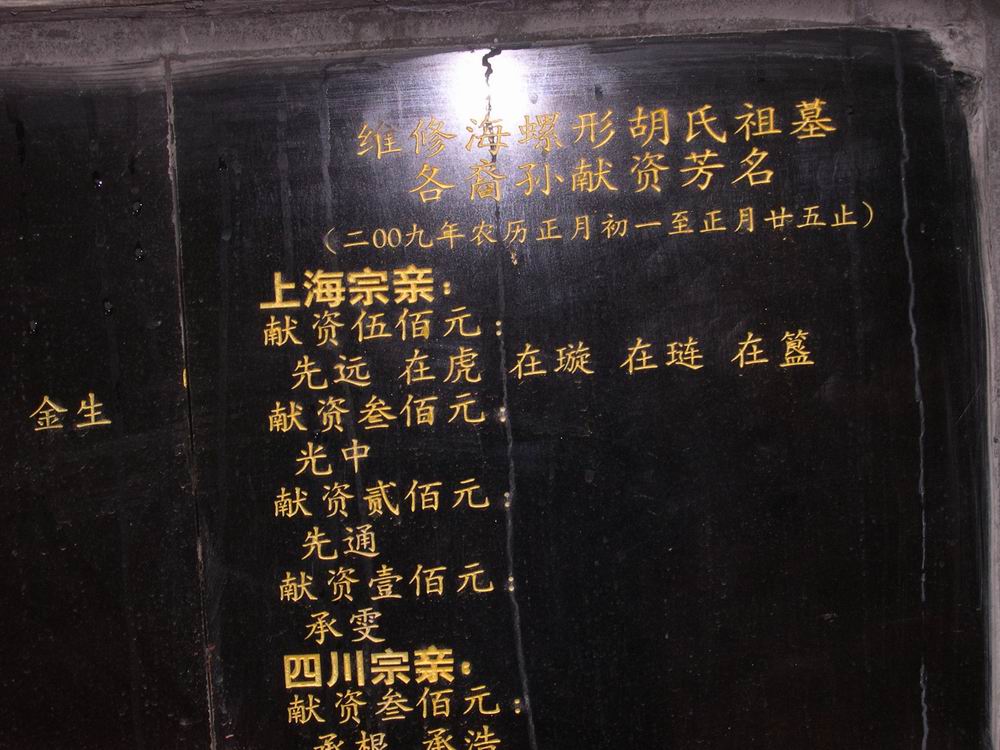 维修海螺形胡氏祖墓
各裔孙献资芳名
（二00九年农历正月初一至正月廿五止）
上海宗亲：
献资伍佰元：
先远 在虎 在璇 在琏 在簋
献资叁佰元：
光中
献资贰佰元：
先通
献资壹佰元：
承雯
四川宗亲：
献资叁佰元：
承根 承浩
金生